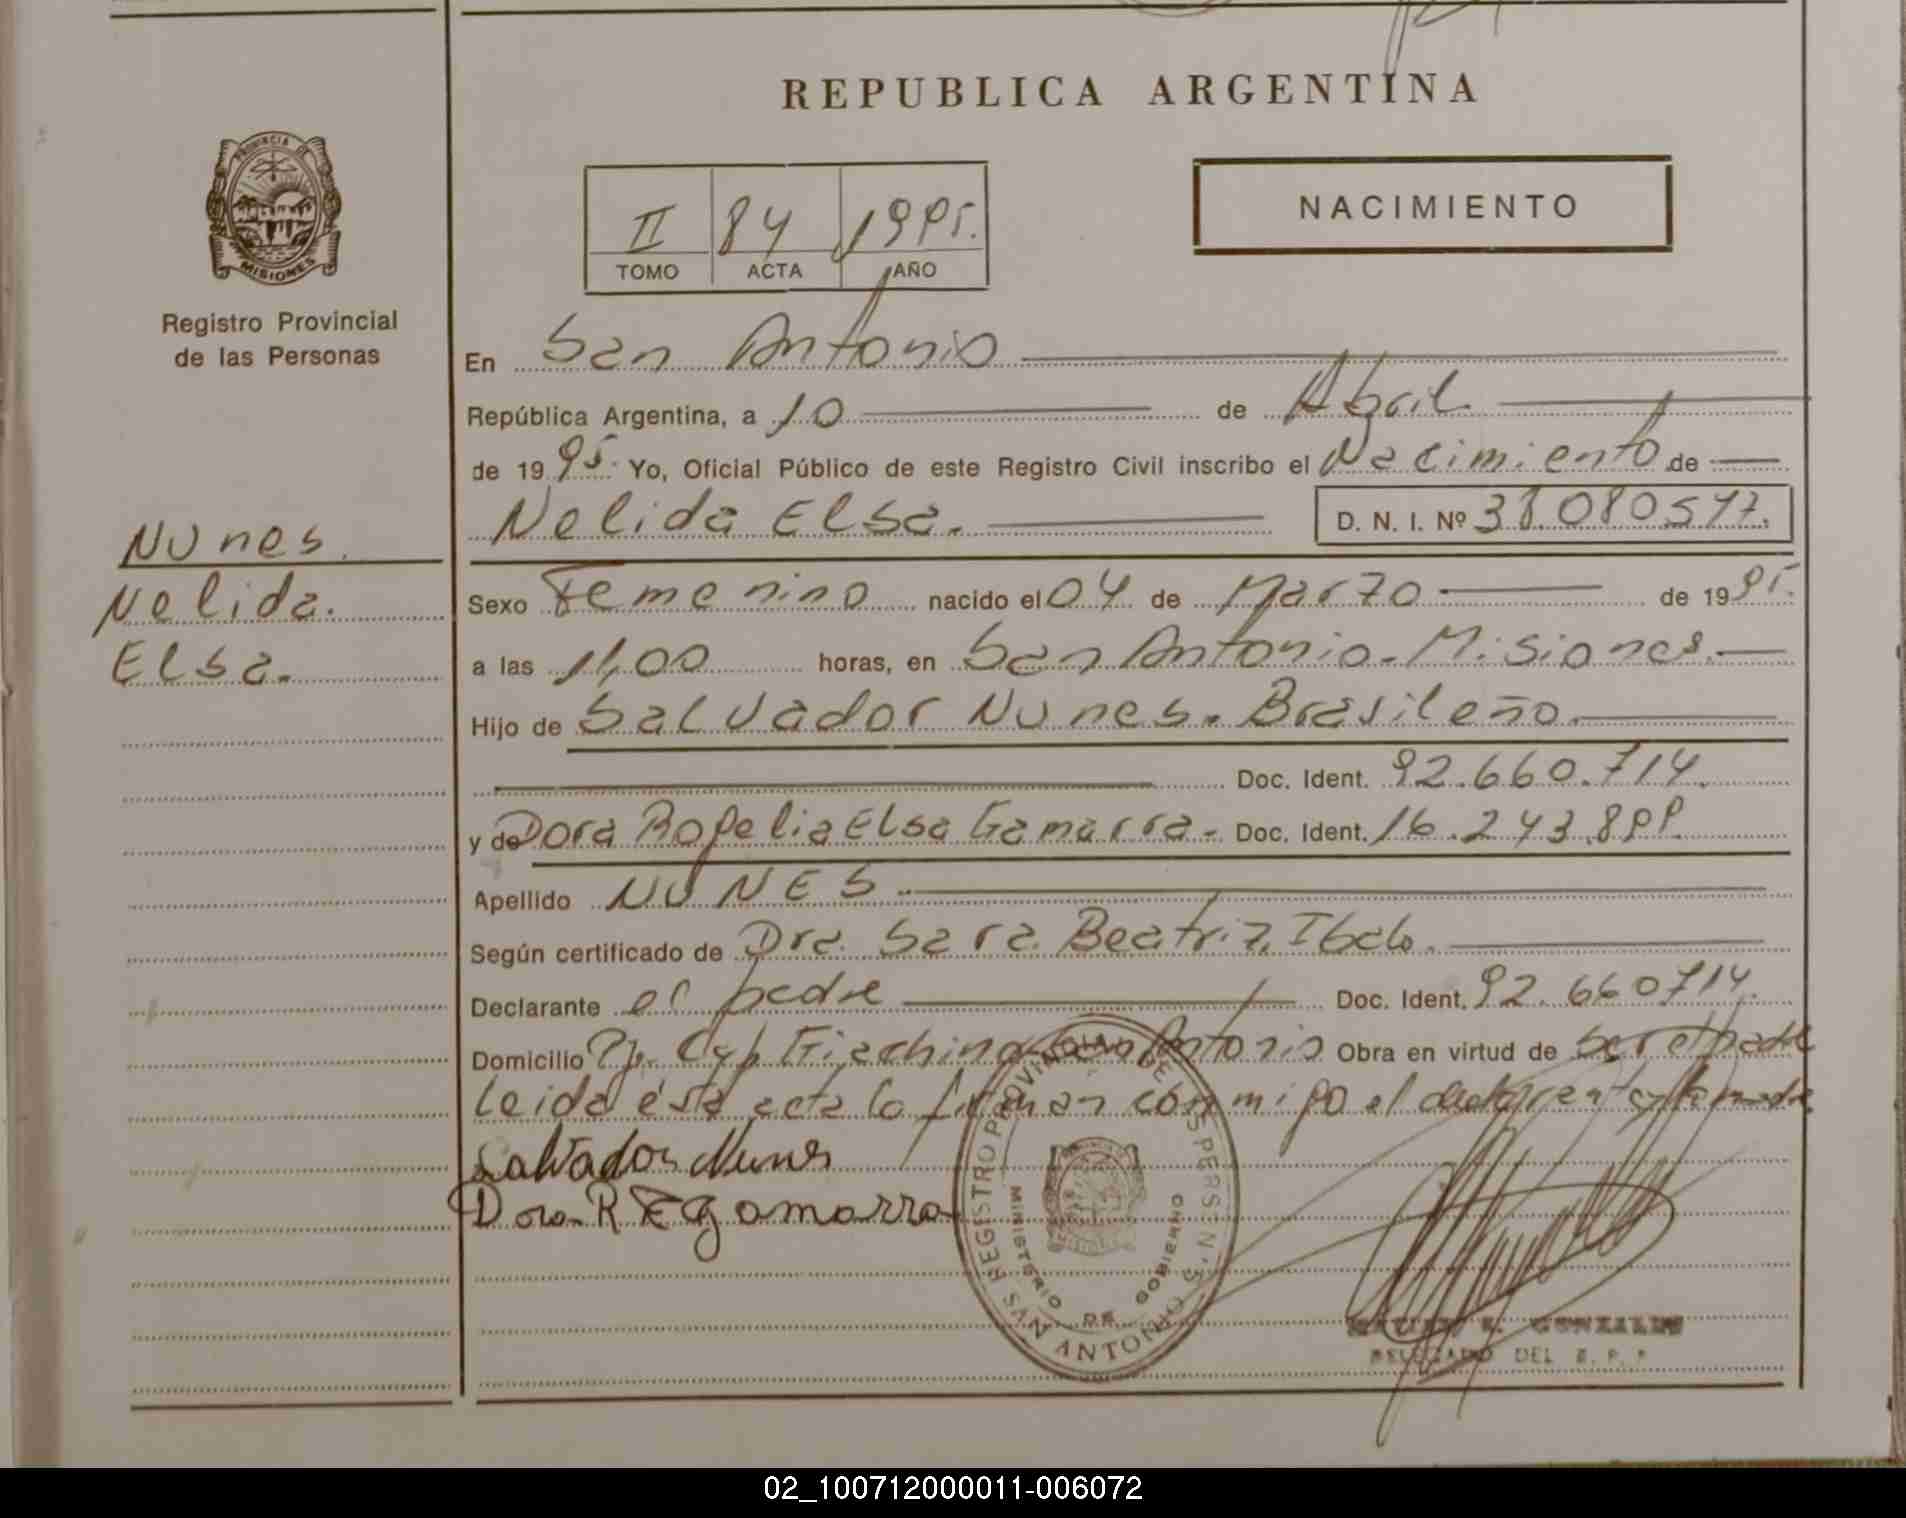 REPUBLICA ARGENTINA
PROVINCIA DE
MISIONES
Registro Provincial
de las Personas
II 84 1995.
TOMO ACTA AÑO
NACIMIENTO
En San Antonio
República Argentina, a 10 de Abril
de 1995. Yo, Oficial Público de este Registro Civil inscribo el Nacimiento de
Nelida Elsa. D. N. I. Nº 38.080577.
Nunes.
Nelida.
Elsa.
Sexo Femenino nacido el 04 de Marzo de 1995.
a las 11,00 horas, en San Antonio - Misiones.
Hijo de Salvador Nunes. Brasileño.
Doc. Ident. 92.660.714.
y de Dora Rogelia Elsa Gamarra - Doc. Ident. 16.243.899.
Apellido NUNES
Según certificado de Dra. Sara Beatriz Ibalo.
Declarante el padre Doc. Ident. 92.660714.
Domicilio Pje. Giachino San Antonio Obra en virtud de ser el padre
leida ésta acta la firman conmigo el declarante y la madre
Salvador Nunes
Dora R E Gamarra
REGISTRO PROVINCIAL DE PERSON'S
MINISTERIO DE GOBIERNO
SAN ANTONIO
GONZALEZ
DELEGADO DEL R. P. P.
02_100712000011-006072